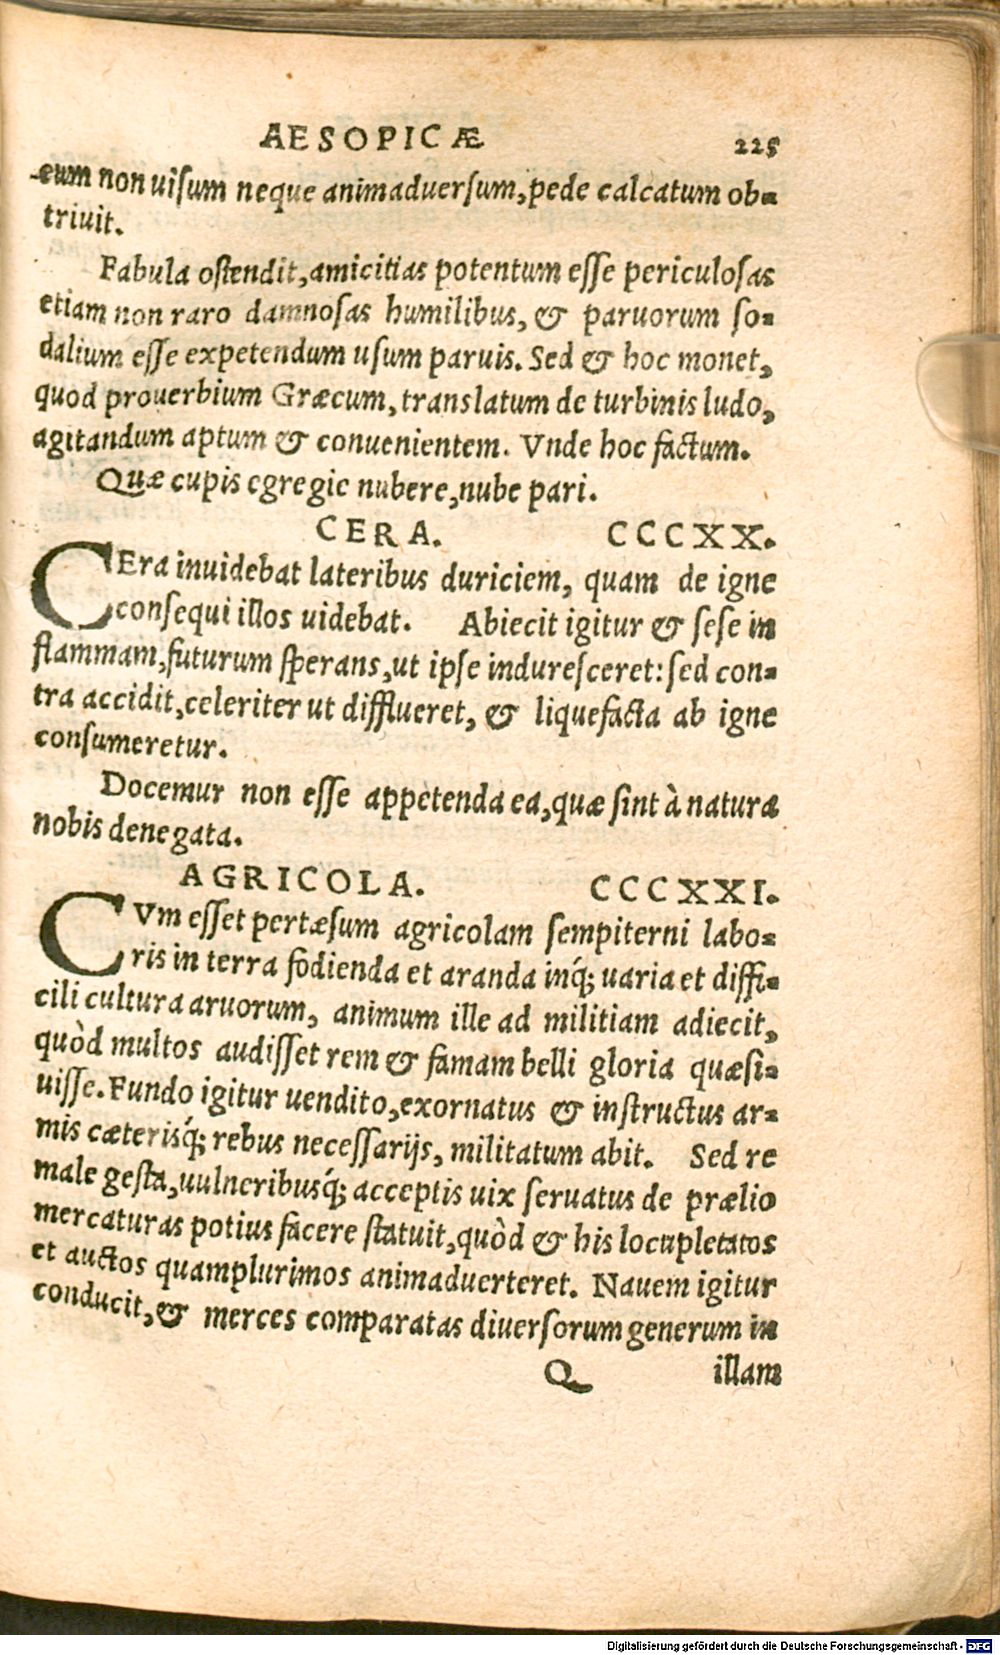 AESOPICÆ 225
eum non uisum neque animaduersum, pede calcatum ob-
triuit.
Fabula ostendit, amicitias potentum esse periculosas
etiam non raro damnosas humilibus, & paruorum so-
dalium esse expetendum usum paruis. Sed & hoc monet,
quod prouerbium Græcum, translatum de turbinis ludo,
agitandum aptum & conuenientem. Vnde hoc factum.
Quæ cupis egregie nubere, nube pari.
CERA. CCCXX.
CEra inuidebat lateribus duriciem, quam de igne
consequi illos uidebat. Abiecit igitur & sese in
flammam, futurum sperans, ut ipse induresceret: sed con-
tra accidit, celeriter ut difflueret, & liquefacta ab igne
consumeretur.
Docemur non esse appetenda ea, quæ sint à natura
nobis denegata.
AGRICOLA. CCCXXI.
CVm esset pertæsum agricolam sempiterni labo-
ris in terra fodienda et aranda inq́; uaria et diffi-
cili cultura aruorum, animum ille ad militiam adiecit,
quòd multos audisset rem & famam belli gloria quæsi-
uisse. Fundo igitur uendito, exornatus & instructus ar-
mis cæterisq́; rebus necessarijs, militatum abit. Sed re
male gesta, uulneribusq́; acceptis uix seruatus de prælio
mercaturas potius facere statuit, quòd & his locupletatos
et auctos quamplurimos animaduerteret. Nauem igitur
conducit, & merces comparatas diuersorum generum in
Q illam
Digitalisierung gefördert durch die Deutsche Forschungsgemeinschaft - DFG